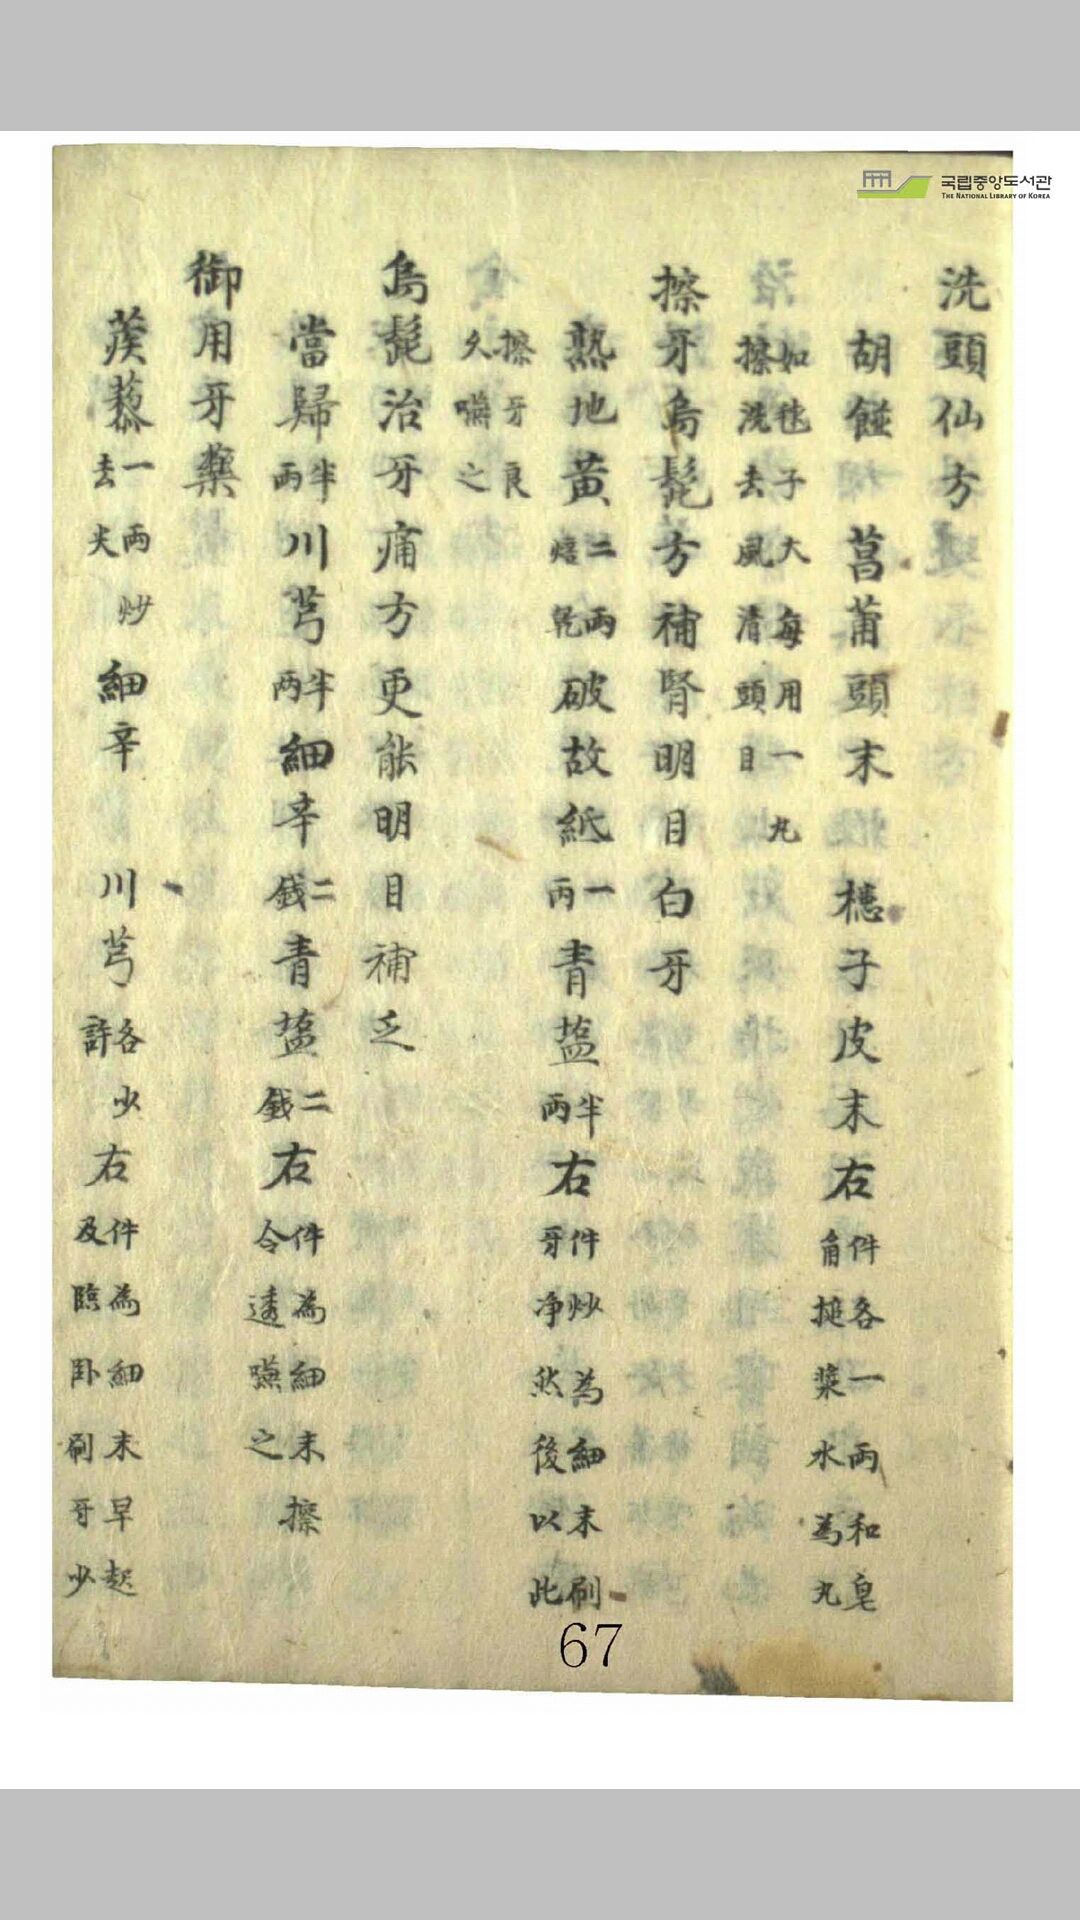 국립중앙도서관
THE NATIONAL LIBRARY OF KOREA
洗頭仙方
胡饉菖莆頭末 槵子皮末右件各一兩和皂角搥漿水為丸
如毬子大每用一丸擦洗去風清頭目
擦牙烏髭方補腎明目白牙
熟地黃二兩焙乾破故紙一兩青塩半兩右件炒為細末刷牙净然後以此
擦牙良久嚥之
烏髭治牙痛方更能明目補乏
當歸半兩川芎半兩細辛二錢青塩二錢右件為細末擦令透嚥之
御用牙藥
蒺藜一兩炒去尖細辛 川芎各少許右件為細末早起及臨卧刷牙少
67